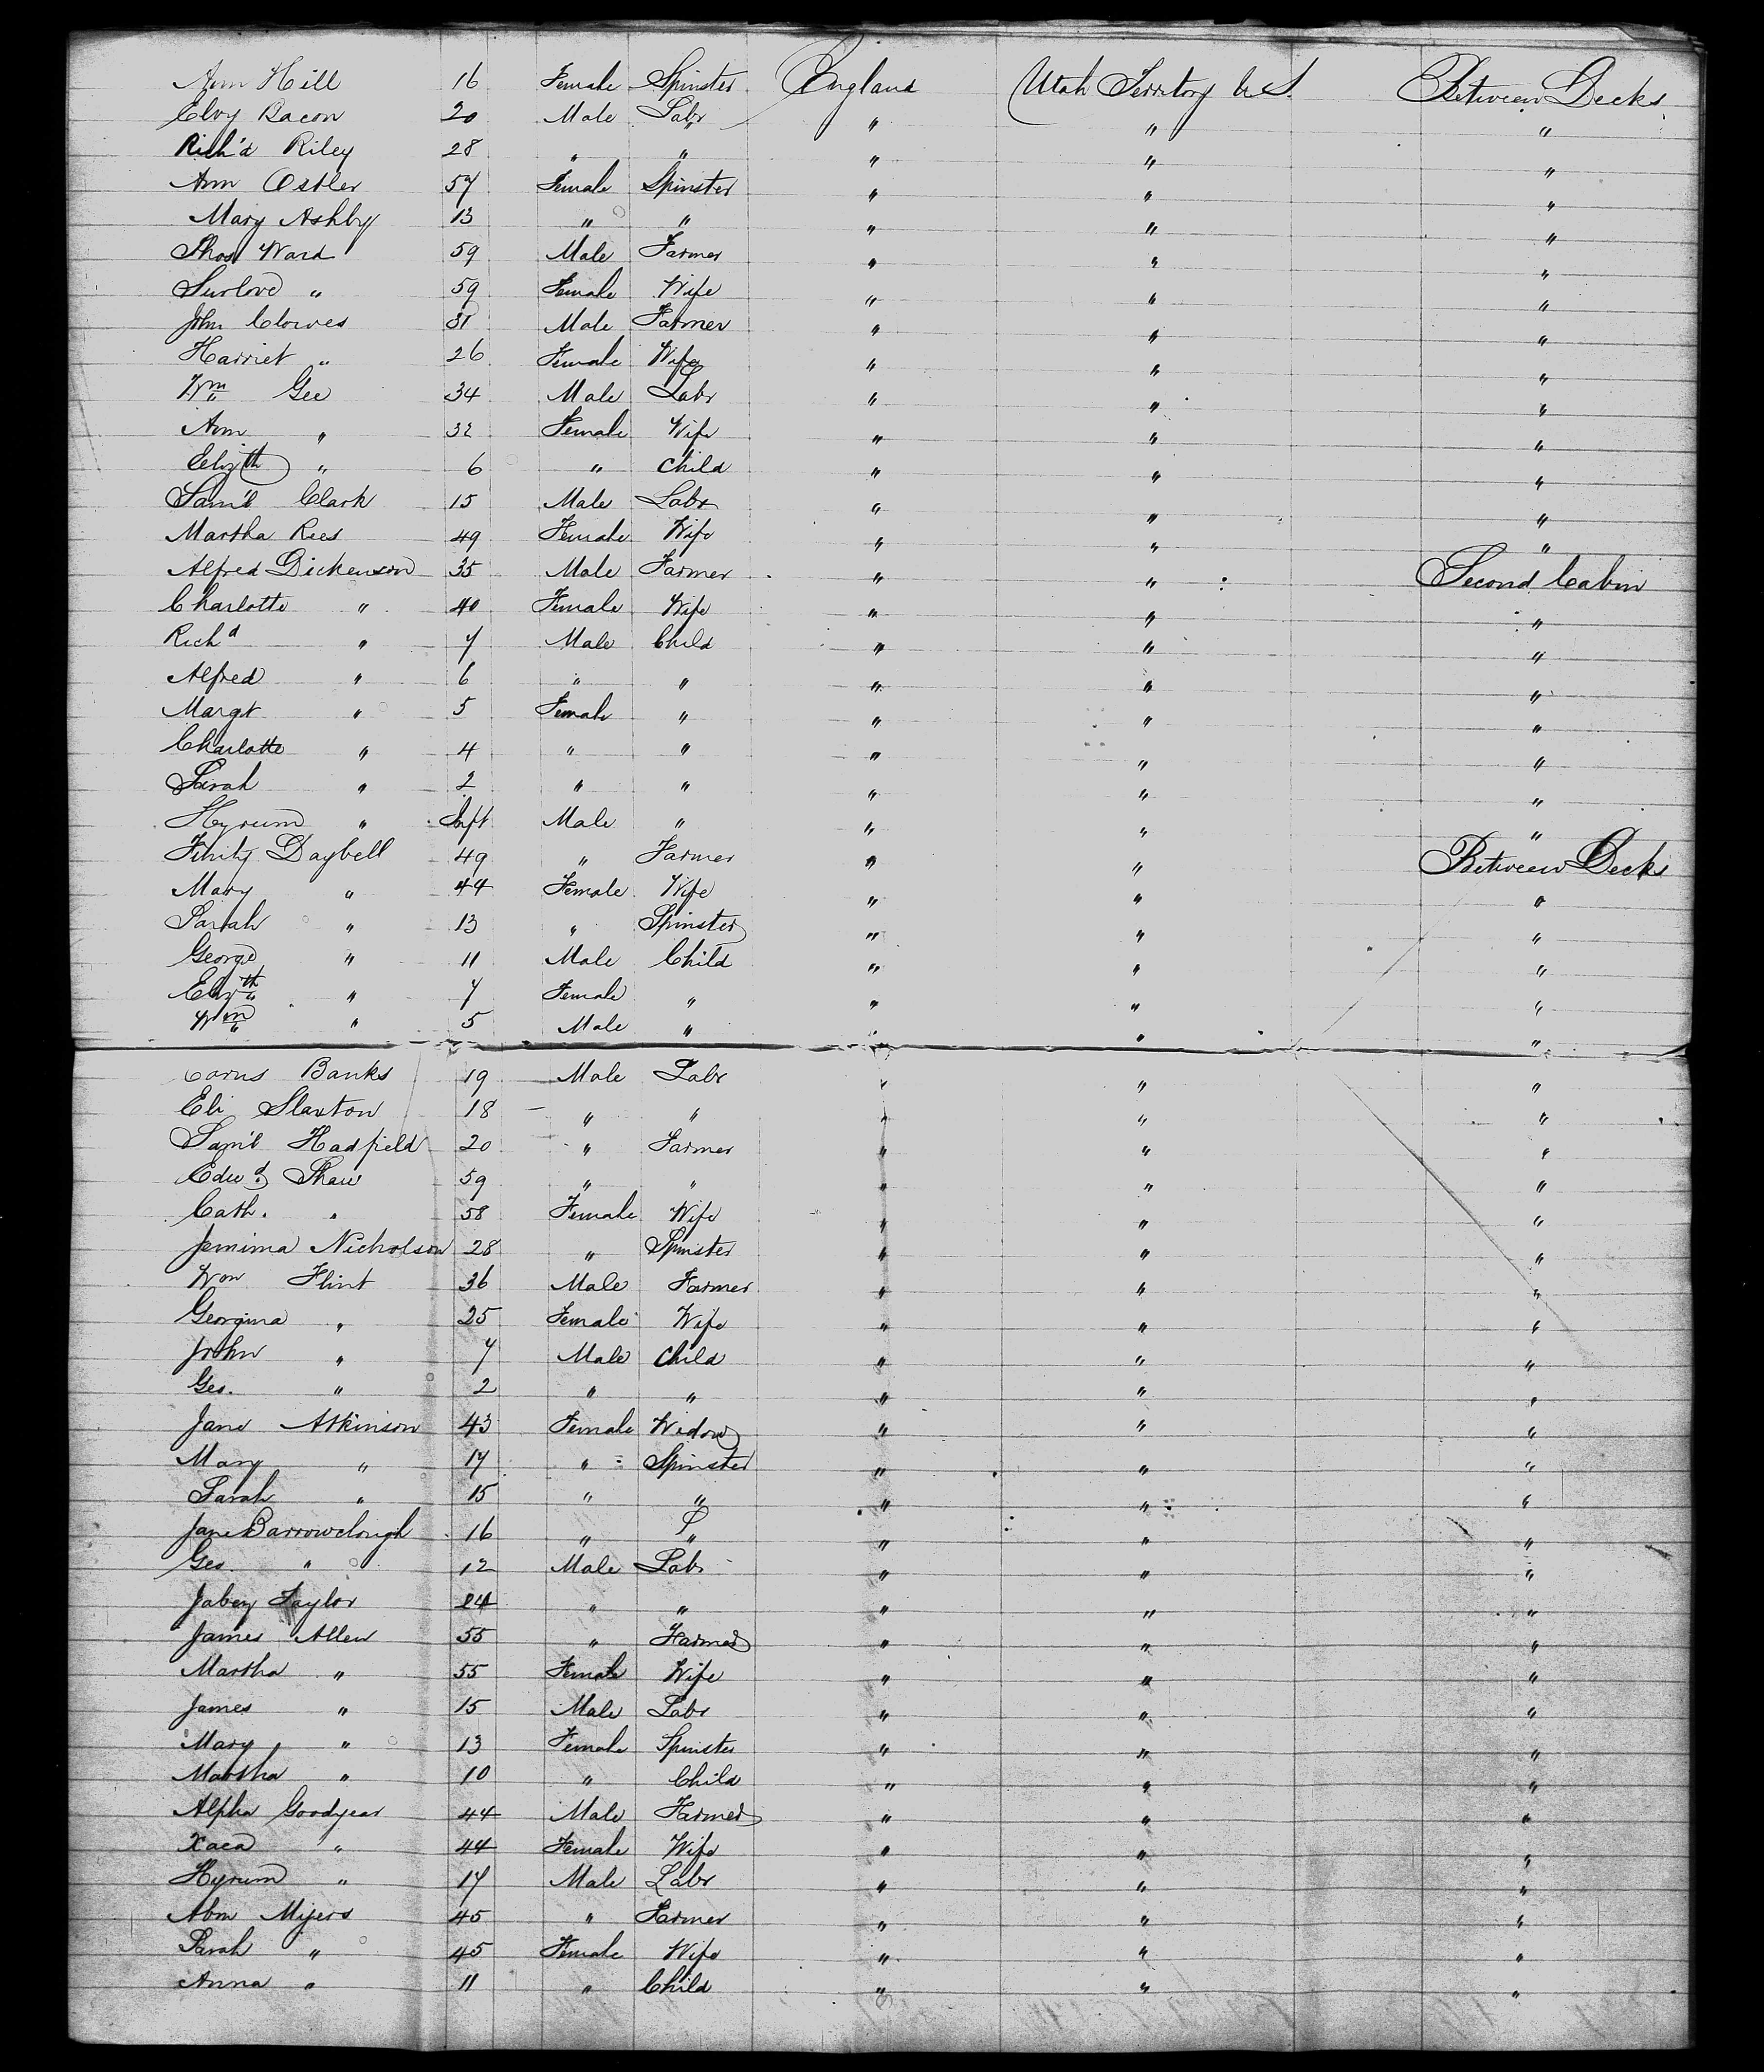 Ann Hill 16 Female Spinster England Utah Territory U.S. Between Decks
Elvy Bacon 20 Male Labr " " "
Rich'd Riley 28 " " " " "
Ann Ostler 57 Female Spinster " " "
Mary Ashby 13 " " " " "
Thos Ward 59 Male Farmer " " "
Surlove " 59 Female Wife " " "
John Clowes 31 Male Farmer " " "
Harriet " 26 Female Wife " " "
Wm Gee 34 Male Labr " " "
Ann " 32 Female Wife " " "
Elizth " 6 " Child " " "
Sam'l Clark 15 Male Labr " " "
Martha Rees 49 Female Wife " " "
Alfred Dickenson 35 Male Farmer " " Second Cabin
Charlotte " 40 Female Wife " " "
Richd " 7 Male Child " " "
Alfred " 6 " " " " "
Margt " 5 Female " " " "
Charlotte " 4 " " " " "
Sarah " 2 " " " " "
Hyrum " Inft Male " " " "
Finity Daybell 49 " Farmer " " Between Decks
Mary " 44 Female Wife " " "
Sarah " 13 " Spinster " " "
George " 11 Male Child " " "
Elizth " 7 Female " " " "
Wm " 5 Male " " " "
Banks 19 Male Labr " " "
Eli Slaxton 18 " " " " "
Sam'l Hadfield 20 " Farmer " " "
Edwd Shaw 59 " " " " "
Cath. " 58 Female Wife " " "
Jemima Nicholson 28 " Spinster " " "
Wm Flint 36 Male Farmer " " "
Georgina " 25 Female Wife " " "
John " 7 Male Child " " "
Geo. " 2 " " " " "
Jane Atkinson 43 Female Widow " " "
Mary " 17 " Spinster " " "
Sarah " 15 " " " " "
Jane Barrowclough 16 " " " " "
Geo. " 12 Male Labr " " "
Jabez Taylor 24 " " " " "
James Allen 55 " Farmer " " "
Martha " 55 Female Wife " " "
James " 15 Male Labr " " "
Mary " 13 Female Spinster " " "
Martha " 10 " Child " " "
Alpha Goodyear 44 Male Farmer " " "
Xaca " 44 Female Wife " " "
Hyrum " 17 Male Labr " " "
Abm Myers 45 " Farmer " " "
Sarah " 45 Female Wife " " "
Anna " 11 " Child " " "